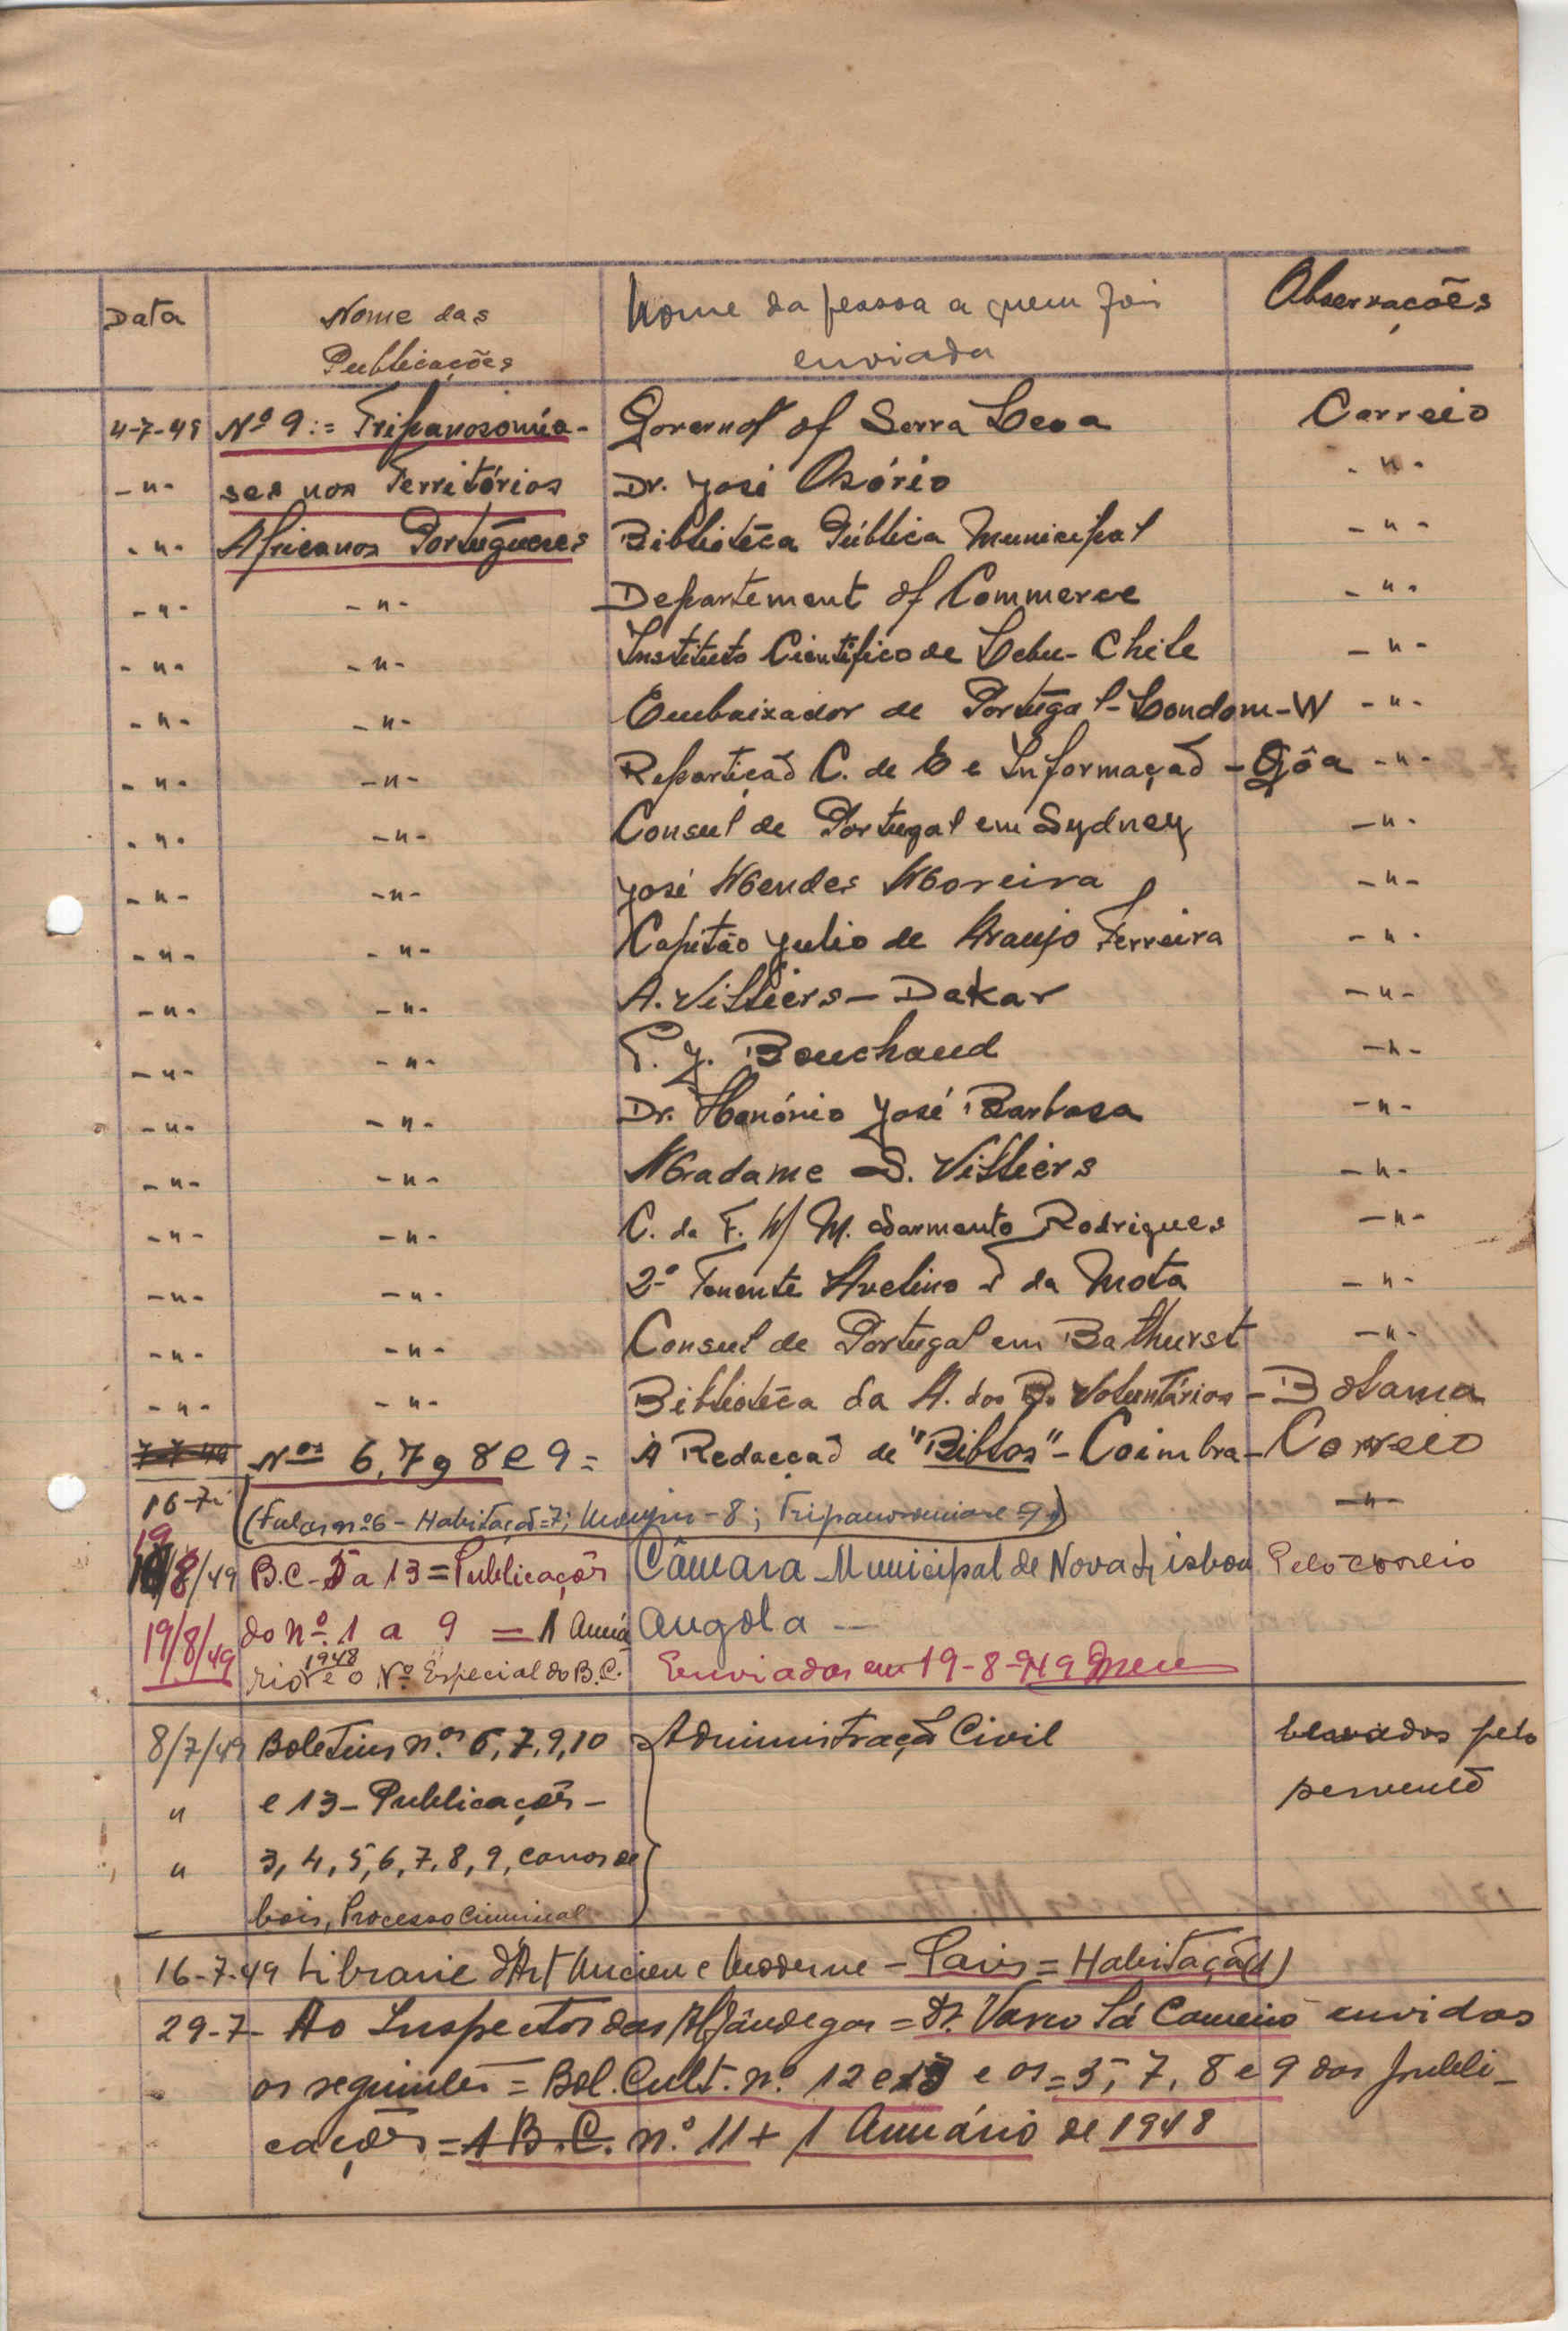 Data Nome das Nome da pessoa a quem foi Observações
Publicações enviada
4-7-49 Nº 9:= Tripanosomía- Governof of Serra Leoa Correio
-"- ses nos Territórios Dr. José Osório -"-
-"- Africanos Portugueses Bibliotéca Pública Municipal -"-
-"- -"- Departement of Commerce -"-
-"- -"- Instituto Científico de Lebu-Chile -"-
-"- -"- Embaixador de Portugal-Londom-W -"-
-"- -"- Repartição C. de E e Informação -Gôa -"-
-"- -"- Consul de Portugal em Sydney -"-
-"- -"- José Mendes Moreira -"-
-"- -"- Capitão Julio de Araujo Ferreira -"-
-"- -"- A. Villiers - Dakar -"-
-"- -"- P. J. Bouchaud -"-
-"- -"- Dr. Honório José Barbosa -"-
-"- -"- Madame S. Villiers -"-
-"- -"- C. de F. M. Sarmento Rodrigues -"-
-"- -"- 2º Tenente Avelino T da Mota -"-
-"- -"- Consul de Portugal em Bathurst -"-
-"- -"- Bibliotéca da A. dos B. Voluntários - Bolama
7-7-49 Nos 6, 7, 8 e 9 = A Redacção de "Biblos" - Coimbra - Correio
16-7- (Fulas nº 6 - Habitação=7; - 8; Tripanosomiase 9) -"-
19/8/49 B.C. 5 a 13 = Publicações Câmara Municipal de Nova Lisboa Pelo correio
19/8/49 do nº 1 a 9 = 1 Anuá Angola -
rio 1948 e o Nº Especial do B.C. Enviados em 19-8-949
8/7/49 Boletins n.os 6, 7, 9, 10 Administração Civil pelo
" e 13 - Publicações - servente
" 3, 4, 5, 6, 7, 8, 9, carros de
bois, Processo Criminal
16-7-49 Librarie d'Art Ancien e Moderne - Paris = Habitação(1)
29-7- Ao Inspector das Alfândegas = Dr. Vasco Sá Carneiro enviados
" os seguintes = Bol. Cult. nº 12 e 13 e os = 5, 7, 8 e 9 das publi-
cações = 1 B.C. n.º 11 + 1 Anuário de 1948